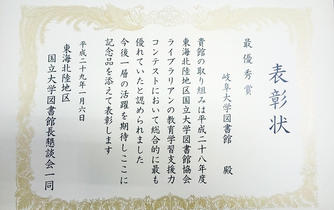 表彰状
最優秀賞
岐阜大学図書館 殿
貴館の取り組みは平成二十八年度
東海北陸地区国立大学図書館協会
ライブラリアンの教育学習支援力
コンテストにおいて総合的に最も
優れていたと認められました
今後一層の活躍を期待しここに
記念品を添えて表彰します
平成二十九年一月六日
東海北陸地区
国立大学図書館長懇談会一同